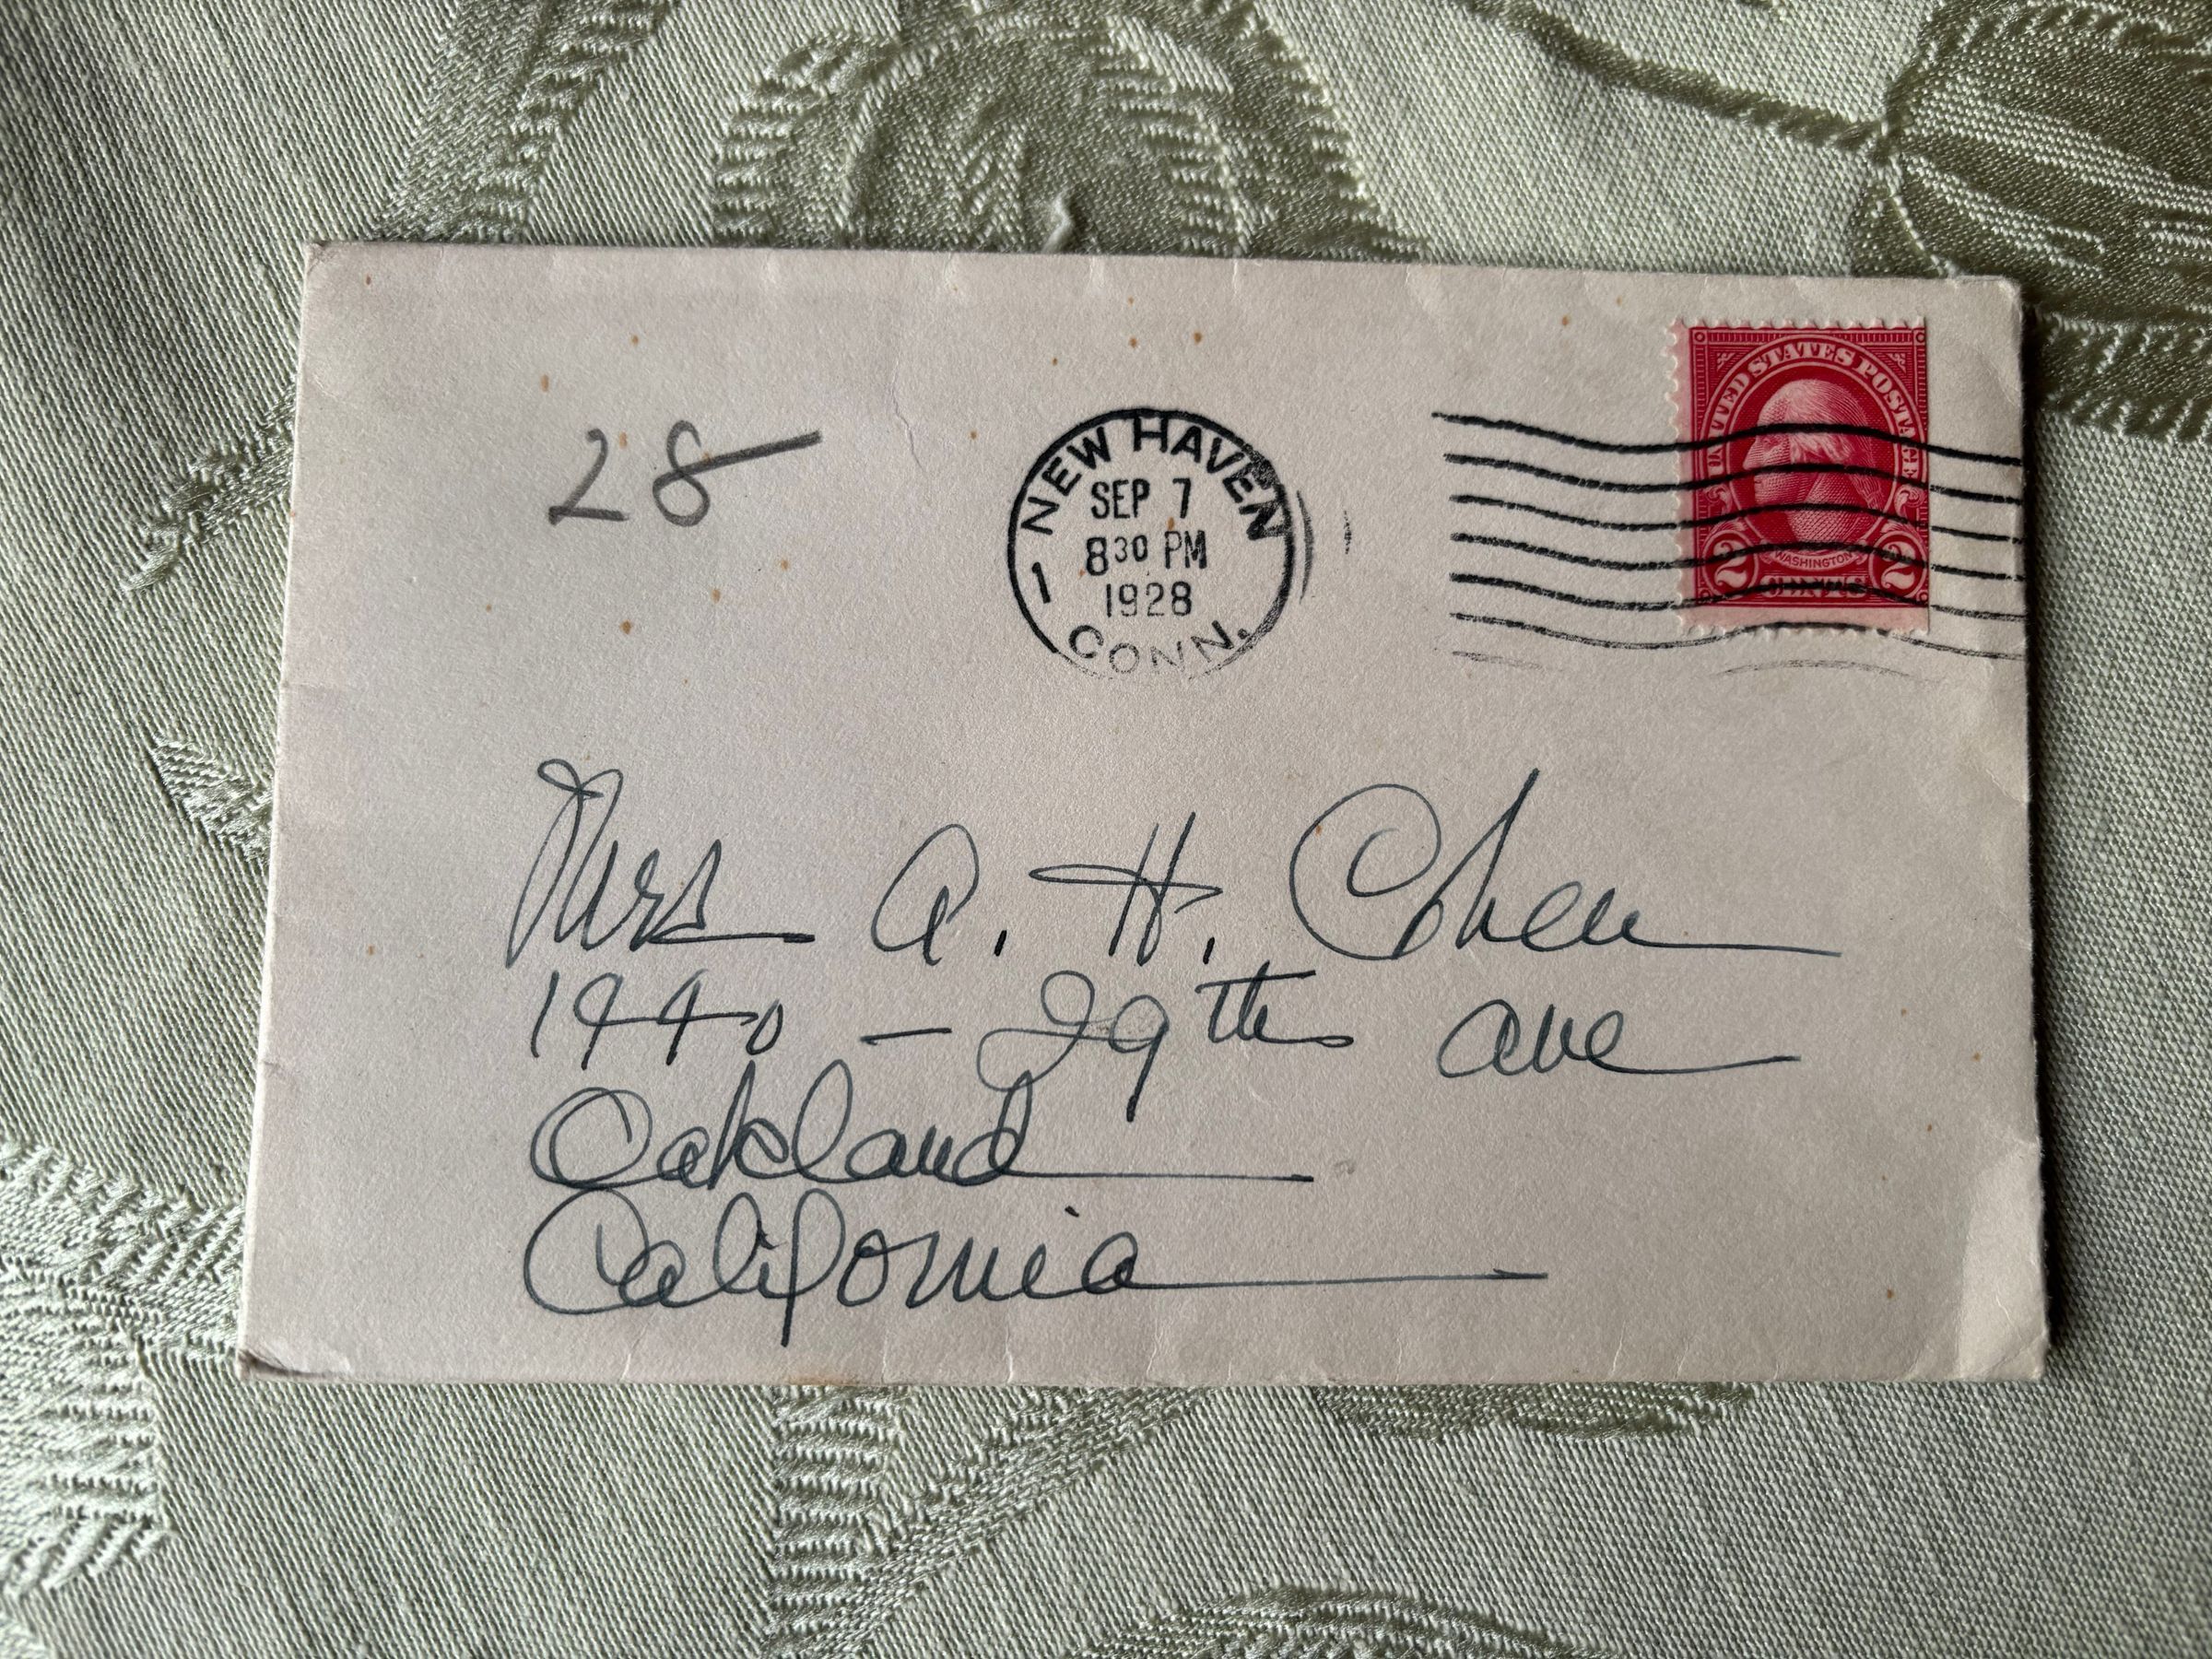 28
NEW HAVEN
SEP 7
8 30 PM
1928
1
CONN.
UNITED STATES POSTAGE
WASHINGTON
2 CENTS 2
Mrs A. H. Cohen
1440 - 29th Ave
Oakland
California